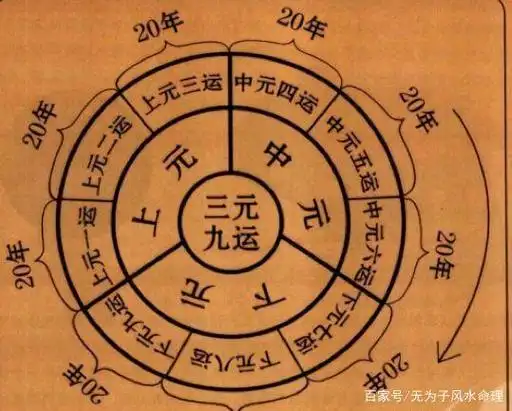 三元
九运
上元
中元
下元
上元一运
上元二运
上元三运
中元四运
中元五运
中元六运
下元七运
下元八运
下元九运
20年
20年
20年
20年
20年
20年
20年
20年
百家号/无为子风水命理